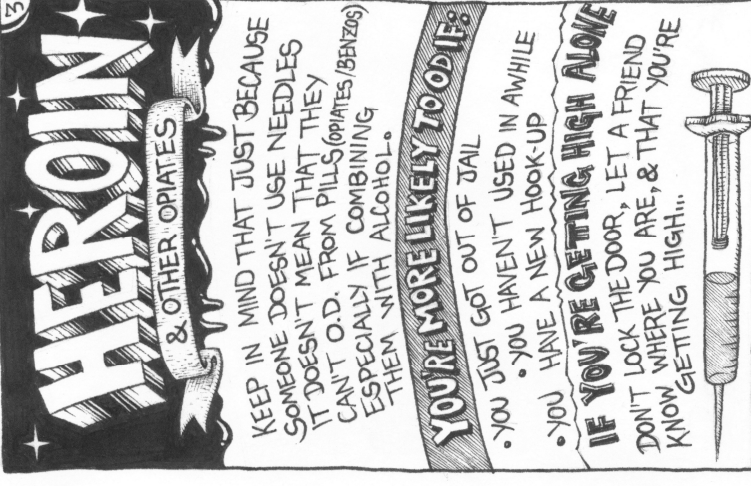 3
HEROIN
& OTHER OPIATES
KEEP IN MIND THAT JUST BECAUSE
SOMEONE DOESN'T USE NEEDLES
IT DOESN'T MEAN THAT THEY
CAN'T O.D. FROM PILLS (OPIATES/BENZOS)
ESPECIALLY IF COMBINING
THEM WITH ALCOHOL.
YOU'RE MORE LIKELY TO OD IF:
• YOU JUST GOT OUT OF JAIL
• YOU HAVEN'T USED IN AWHILE
• YOU HAVE A NEW HOOK-UP
IF YOU'RE GETTING HIGH ALONE
DON'T LOCK THE DOOR, LET A FRIEND
KNOW WHERE YOU ARE, & THAT YOU'RE
GETTING HIGH...